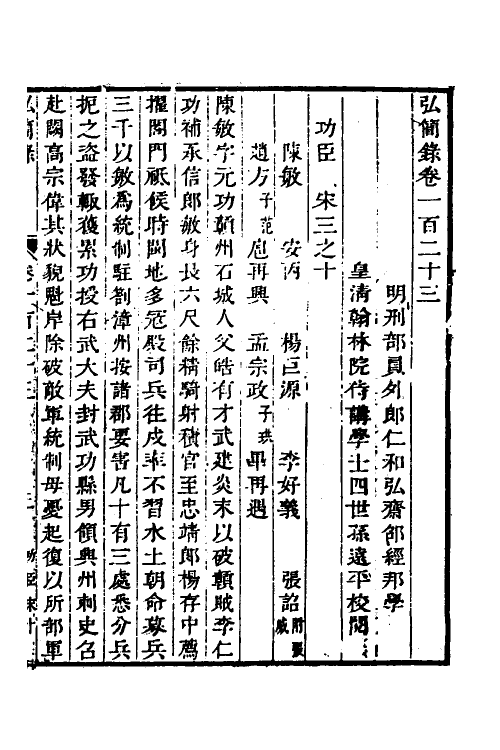 弘簡錄卷一百二十三
明刑部員外郎仁和弘齋邵經邦學
皇清翰林院侍講學士四世孫遠平校閱
功臣　宋三之十
陳敏　安丙　楊巨源　李好義　張詔
趙方子范　扈再興　孟宗政子珙　畢再遇
陳敏字元功贛州石城人父皓有才武建炎末以破贛賊李仁
功補承信郎敏身長六尺餘精騎射積官至忠靖郎楊存中薦
擢閤門祗候時閩地多寇殿司兵往戍率不習水土朝命募兵
三千以敏爲統制駐劄漳州按諸郡要害凡十有三處悉分兵
扼之盗發輒獲累功授右武大夫封武功縣男領興州刺史召
赴闕高宗偉其狀貌魁岸除破敵軍統制母憂起復以所部軍
弘簡錄　卷一百二十三